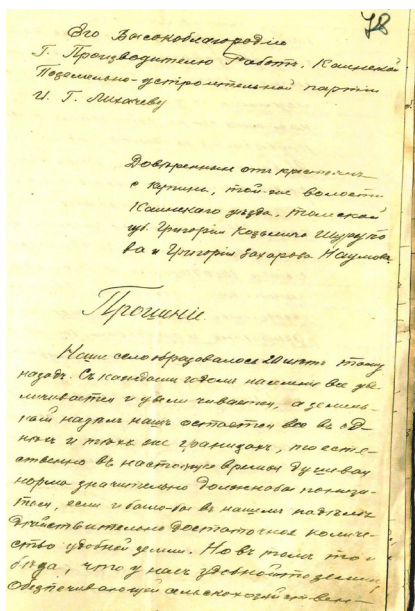 78
Его Высокоблагородію
Г. Производителю Работъ, Каинской
Поземельно-устроительной партіи
И. Г. Лихачеву
Довѣренныхъ отъ крестьянъ
с Купина, той-же волости
Каинскаго уѣзда, Томской
губ. Григорія Козьмича Шурупо
ва и Григорія Захарова Наумова
Прошеніе
Наше село образовалось 20 лѣтъ тому
назадъ. Съ каждымъ годомъ населеніе все уве
личивается и увеличивается, а земель-
ный надѣлъ нашъ остается все въ од-
нихъ и тѣхъ же границахъ, по есте-
ственно въ настоящее время душевая
норма значительно должна бы понизи-
ться, если и было-бы въ нашемъ надѣлѣ
дѣйствительно достаточное количе-
ство удобной земли. Но въ томъ то и
бѣда, что у насъ удобной то земли,
обезпечивающей сельскохозяйствен-